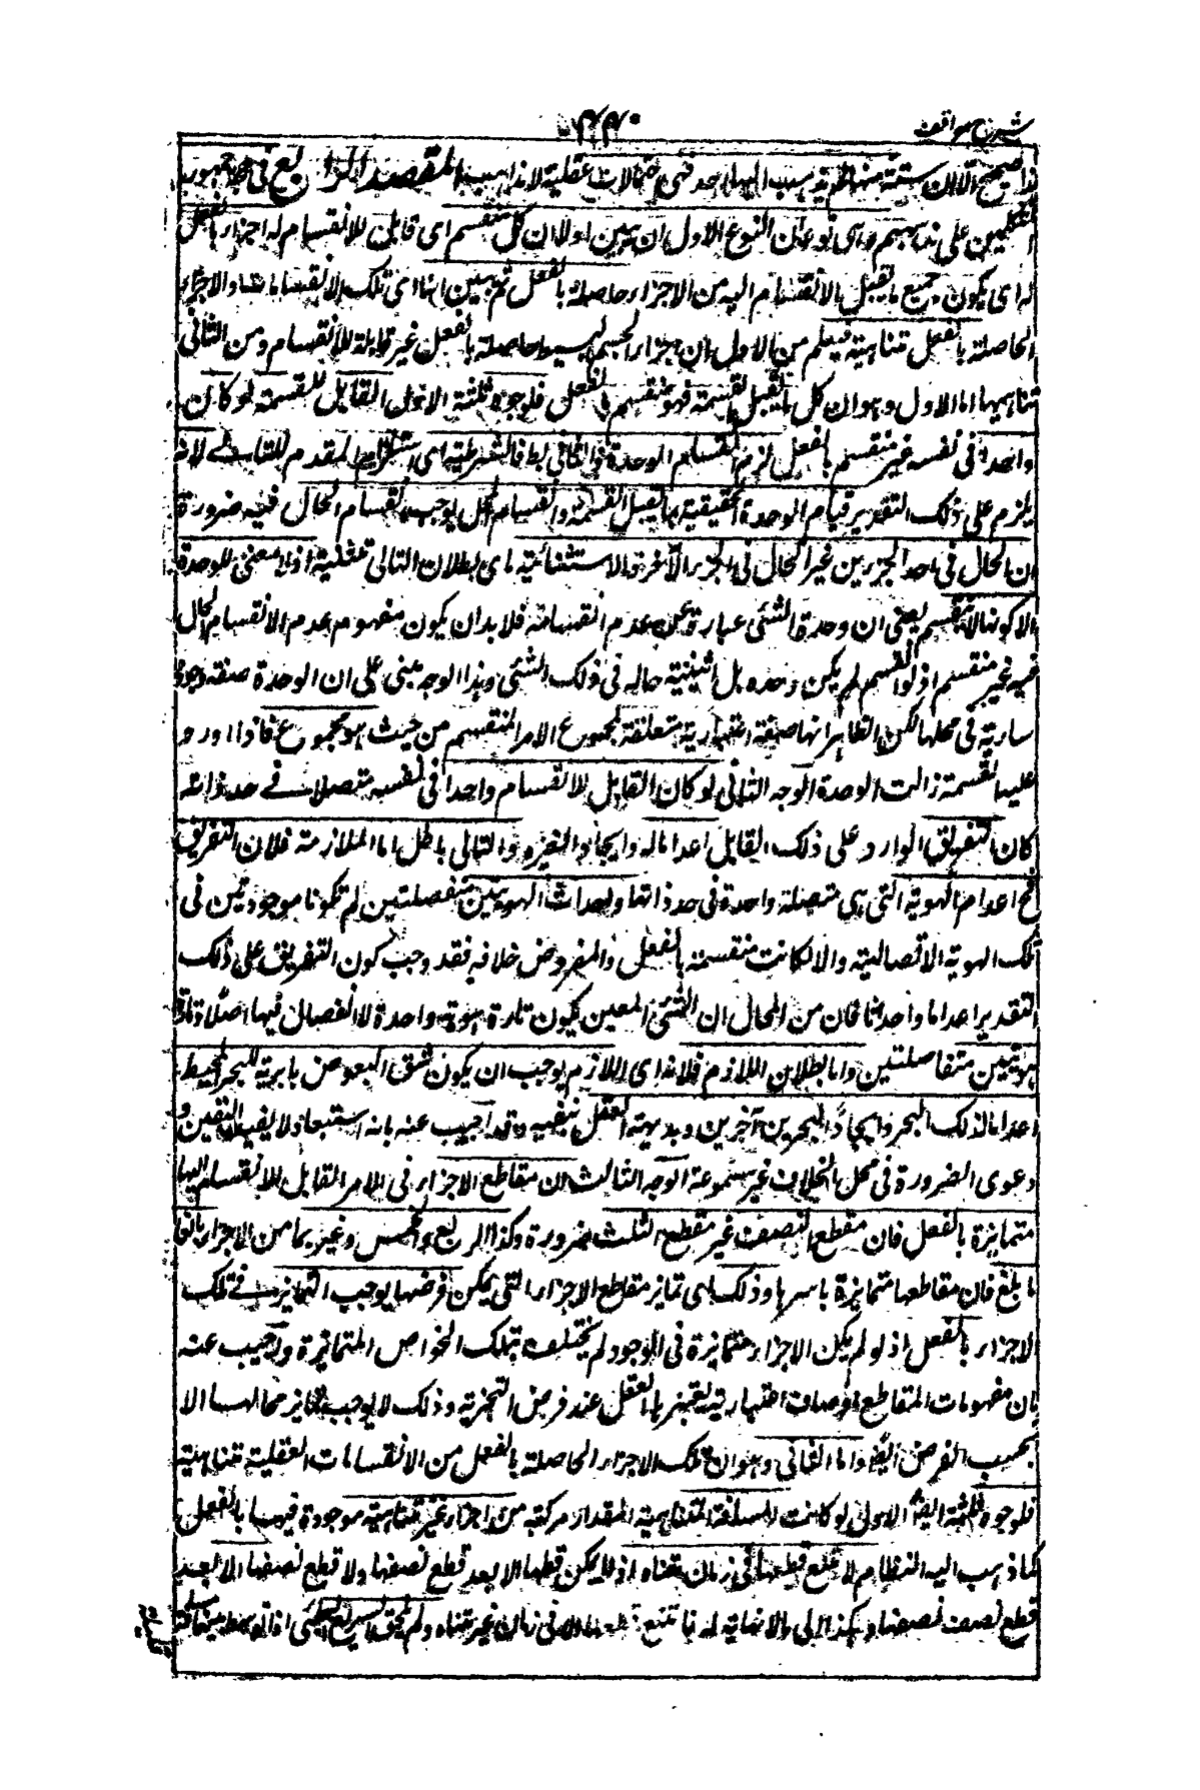 شرح مواقف
۴۴۰
المقصد الرابع في حجة جمهور
المتكلمين على مذهبهم وهي نوعان النوع الاول ان نبين اولا ان كل منقسم اى قابل للانقسام له اجزاء بالفعل
اى يكون جميع ما يقبل الانقسام اليه من الاجزاء حاصلة بالفعل ثم نبين انها اى تلك الانقسامات والاجزاء
الحاصلة بالفعل متناهية فيعلم من الاول ان اجزاء الجسم البسيط حاصلة بالفعل غير قابلة للانقسام ومن الثانى
تناهيها اما الاول وهو ان كل ما يقبل القسمة فهو منقسم بالفعل فلوجوه ثلثة الاول القابل للقسمة لو كان
واحدا فى نفسه غير منقسم بالفعل لزم انقسام الوحدة والتالى بط فالشرطية اى استلزام المقدم للتالى لانه
يلزم على ذلك التقدير قيام الوحدة الحقيقية بما يقبل القسمة وانقسام المحل يوجب انقسام الحال فيه ضرورة
ان الحال فى احد الجزءين غير الحال فى الجزء الآخر والاستثنائية اى بطلان التالى اذ لا معنى للوحدة
الا كونها لا تنقسم يعنى ان وحدة الشئى عبارة عن عدم انقسامه فلا بد ان يكون مفهوم عدم الانقسام الحال
فيه غير منقسم اذ لو انقسم لم يكن وحدة بل اثنينية حالة فى ذلك الشئى وهذا الوجه مبنى على ان الوحدة صفة وجودية
سارية فى محلها لكن الظاهر انها صفة اعتبارية متعلقة بمجموع الامر المنقسم من حيث هو مجموع فاذا اورد
عليه القسمة زالت الوحدة الوجه الثانى لو كان القابل للانقسام واحدا فى نفسه متصلا فى حد ذاته
كان التفريق الوارد على ذلك القابل اعداما له وايجادا لغيره والتالى باطل اما الملازمة فلان التفريق
ح اعدام الهوية التى هى متصلة واحدة فى حد ذاتها واحداث الهويتين منفصلتين لم تكونا موجودتين فى
تلك الهوية الاتصالية والا لكانت منقسمة بالفعل والمفروض خلافه فقد وجب كون التفريق على ذلك
التقدير اعداما واحداثا فان من المحال ان الشئى المعين يكون تارة هوية واحدة لا انفصال فيها اصلا وتارة
هويتين متفاصلتين واما بطلان اللازم فلانه اى اللازم يوجب ان يكون شق البعوض بابرته للبحر المحيط
اعداما لذلك البحر وايجادا لبحرين آخرين وبديهة العقل تنفيه وقد اجيب عنه بانه استبعاد لا يفيد اليقين و
دعوى الضرورة فى محل الخلاف غير مسموعة الوجه الثالث ان مقاطع الاجزاء فى الامر القابل للانقسام اليها
متمايزة بالفعل فان مقطع النصف غير مقطع الثلث ضرورة وكذا الربع والخمس وغيرهما من الاجزاء بالغا
ما بلغ فان مقاطعها متمايزة باسرها وذلك اى تمايز مقاطع الاجزاء التى يمكن فرضها يوجب التمايز فى تلك
الاجزاء بالفعل اذ لو لم يكن الاجزاء متمايزة فى الوجود لم يختلف بتلك الخواص المتمايزة واجيب عنه
بان مفهومات المقاطع اوصاف اعتبارية يعتبرها العقل عند فرض التجزية وذلك لا يوجب تمايز محالها الا
بحسب الفرض ايضا واما الثانى وهو ان تلك الاجزاء الحاصلة بالفعل من الانقسامات العقلية متناهية
فلوجوه ثلثة ايضا الاول لو كانت المسافة المتناهية المقدار مركبة من اجزاء غير متناهية موجودة فيها بالفعل
كما ذهب اليه النظام لامتنع قطعها فى زمان متناه اذ لا يمكن قطعها الا بعد قطع نصفها ولا قطع نصفها الا بعد
قطع نصف نصفها وهكذا الى ما لا نهاية له فامتنع قطعها الا فى زمان غير متناه ولم يلحق السريع البطئى اذا توسط بينهما مسافة